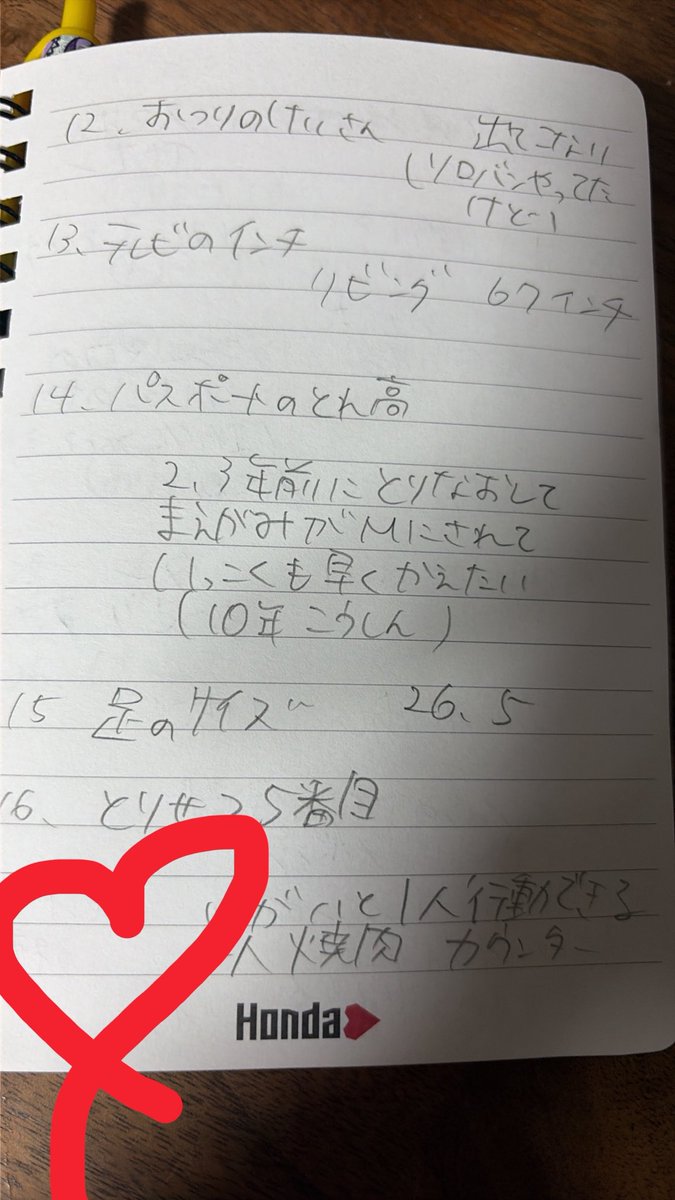 12、おつりのけいさん
出てこない
(ソロバンやってた
けどー)
13、テレビのインチ
リビング 67インチ
14、パスポートのとれ高
2、3年前にとりなおして
まえがみがMにされて
いっこくも早くかえたい
(10年こうしん)
15 足のサイズ 26.5
16、とりせつ 5番目
いがいと1人行動できる
人焼肉 カウンター
Honda